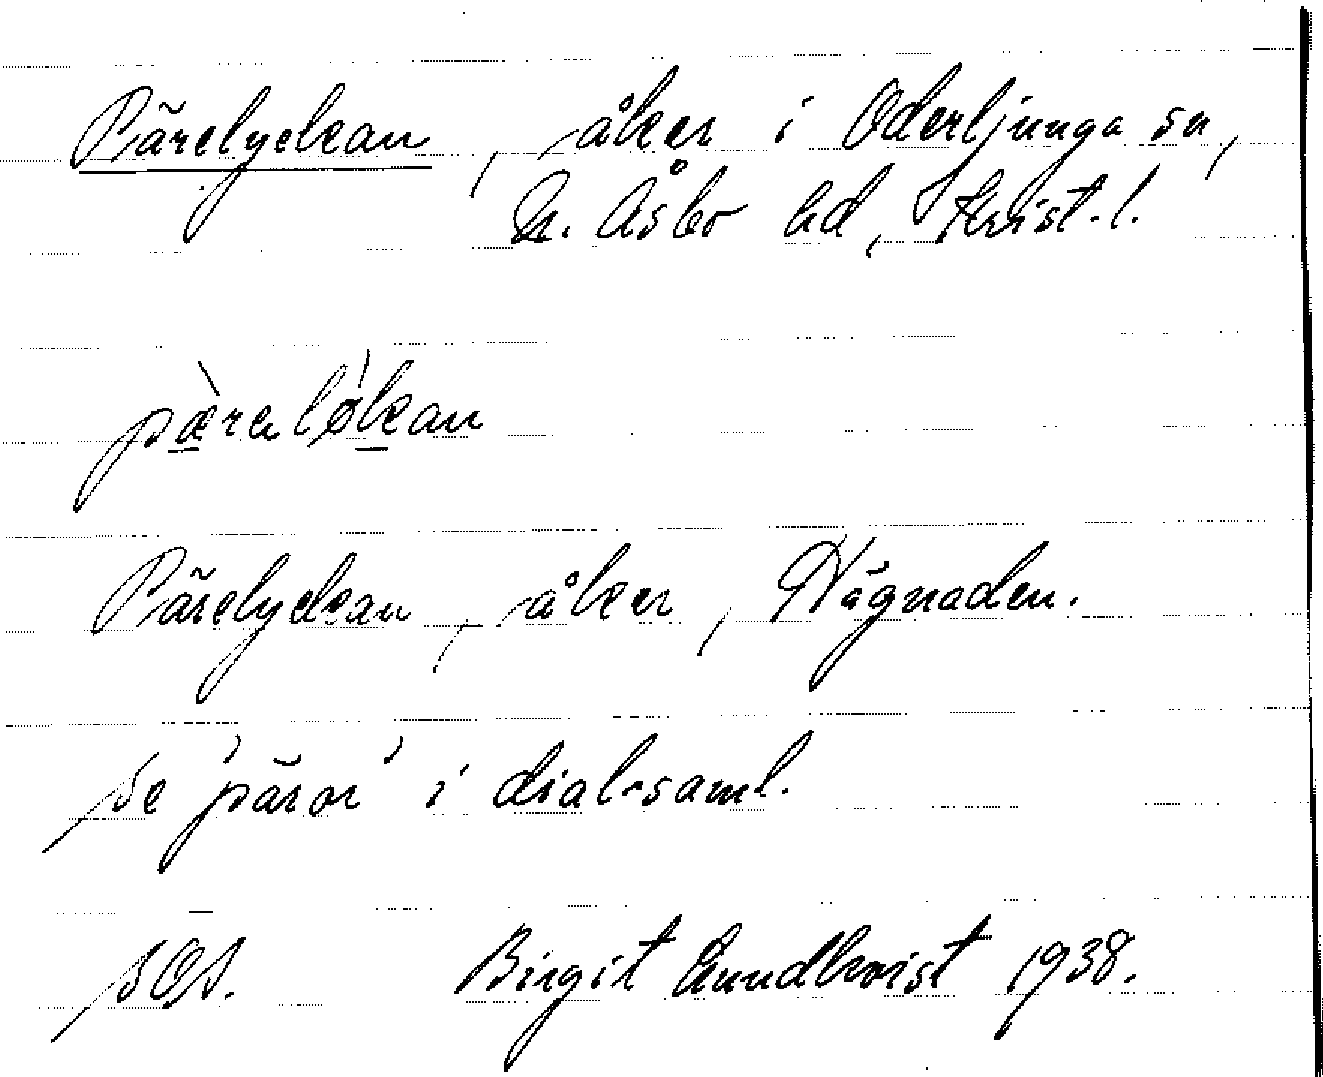 Pärelyckan, åker i Oderljunga sn,
N. Åsbo hd, Krist. l.
pæ̀ralø̀kan
Pärelyckan, åker, Vägnaden.
Se 'päror' i dial.saml.
SOS. Birgit Lundkvist 1938.